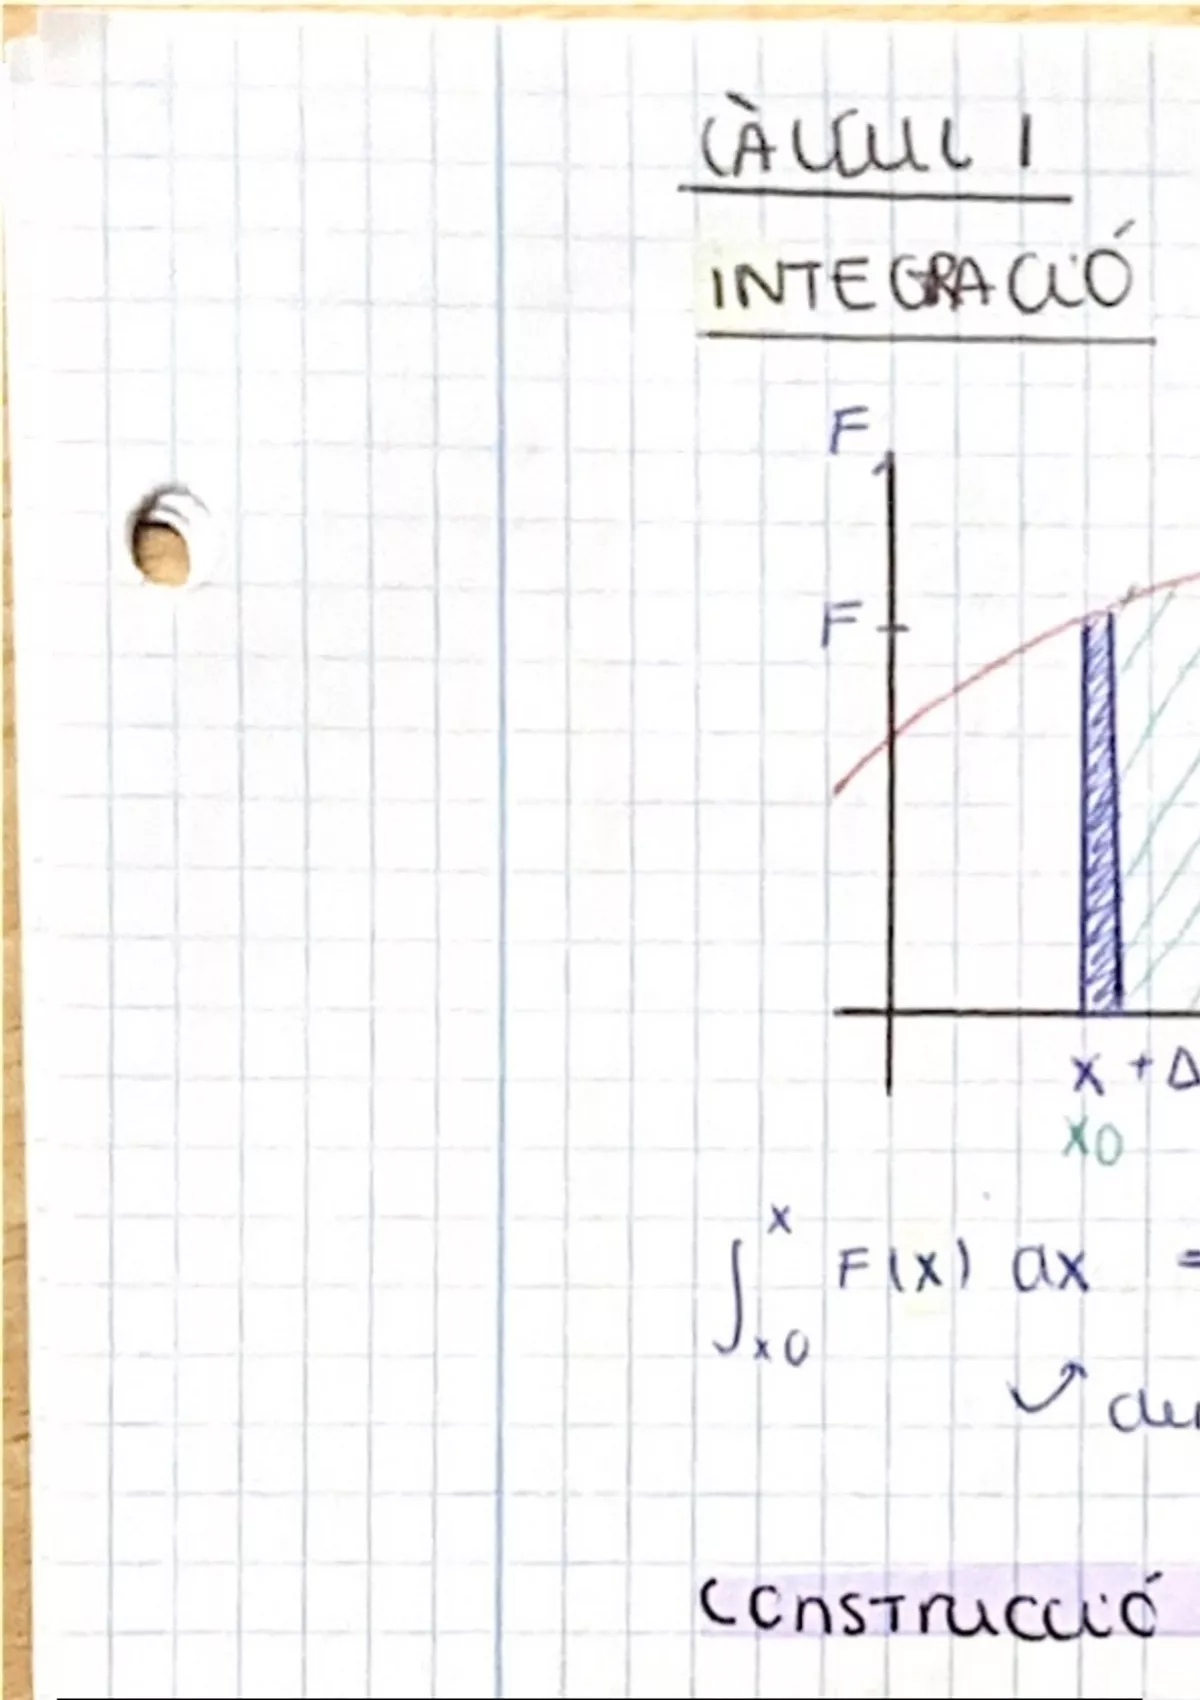 CÀLCUL 1
INTEGRACIÓ
F
F
x + Δ
x0
∫ x x0 F(x) dx =
CONSTRUCCIÓ